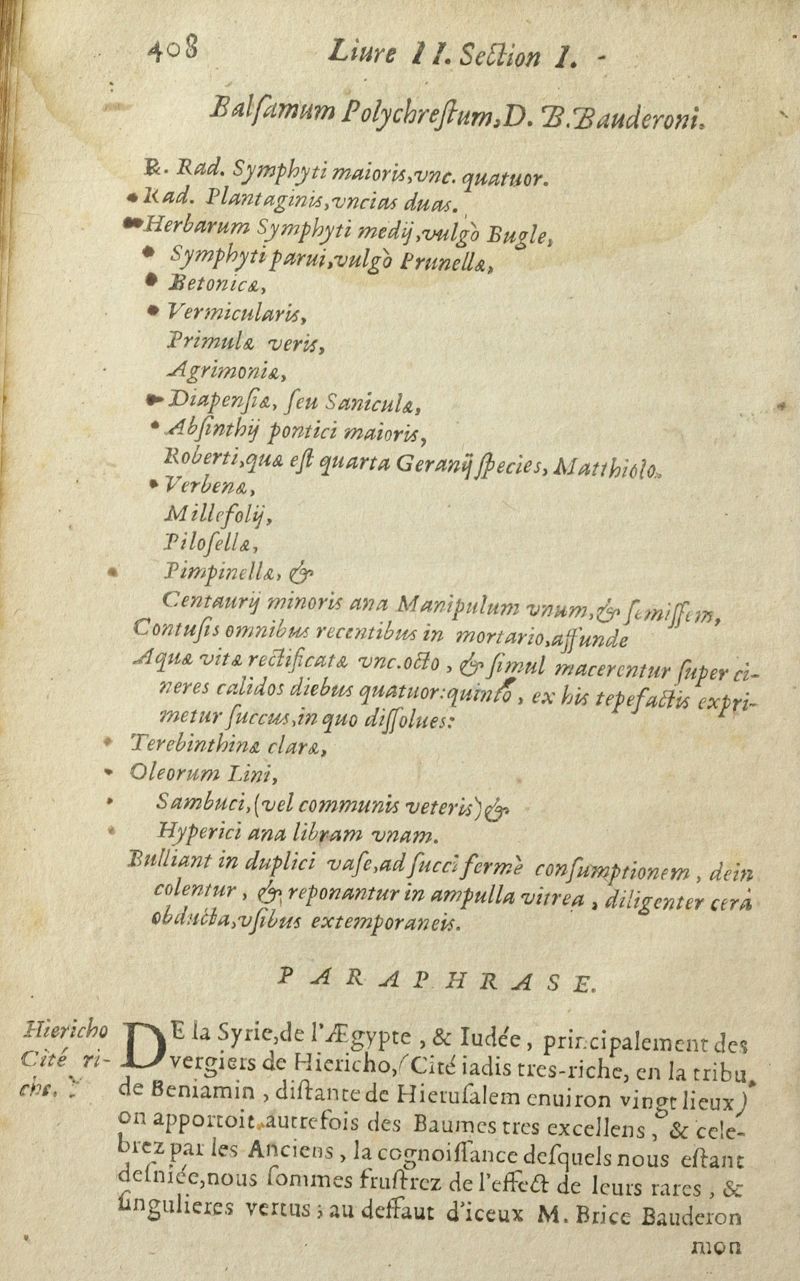 408 Liure II. Section I.
Balſamum Polychreſtum, D. B. Bauderoni.
℞. Rad. Symphyti maioris, vnc. quatuor.
Rad. Plantaginis, vncias duas.
Herbarum Symphyti medij, vulgò Bugle,
Symphyti parui, vulgò Prunellæ,
Betonicæ,
Vermicularis,
Primulæ veris,
Agrimoniæ,
Diapenſiæ, ſeu Saniculæ,
Abſinthij pontici maioris,
Roberti, quæ eſt quarta Geranij ſpecies, Matthiolo.
Verbenæ,
Millefolij,
Piloſellæ,
Pimpinellæ, &
Centaurij minoris ana Manipulum vnum, & ſemiſſem,
Contuſis omnibus recentibus in mortario, affunde
Aquæ vitæ rectificatæ vnc. octo, & ſimul macerentur ſuper ci-
neres calidos diebus quatuor: quinto, ex his tepefactis expri-
metur ſuccus, in quo diſſolues:
Terebinthinæ claræ,
Oleorum Lini,
Sambuci, (vel communis veteris) &
Hyperici ana libram vnam.
Bulliant in duplici vaſe, ad ſucci fermè conſumptionem, dein
colentur, & reponantur in ampulla vitrea, diligenter cerâ
obducta, vſibus extemporaneis.
PARAPHRASE.
Hiericho
Cité ri-
che.
DE la Syrie, de l'Ægypte, & Iudée, principalement des
vergiers de Hiericho, (Cité iadis tres-riche, en la tribu
de Beniamin, diſtante de Hieruſalem enuiron vingt lieux)
on apportoit autrefois des Baumes tres excellens, & cele-
brez par les Anciens, la cognoiſſance deſquels nous eſtant
deſniée, nous ſommes fruſtrez de l'effect de leurs rares, &
ſingulieres vertus; au deffaut d'iceux M. Brice Bauderon
mon